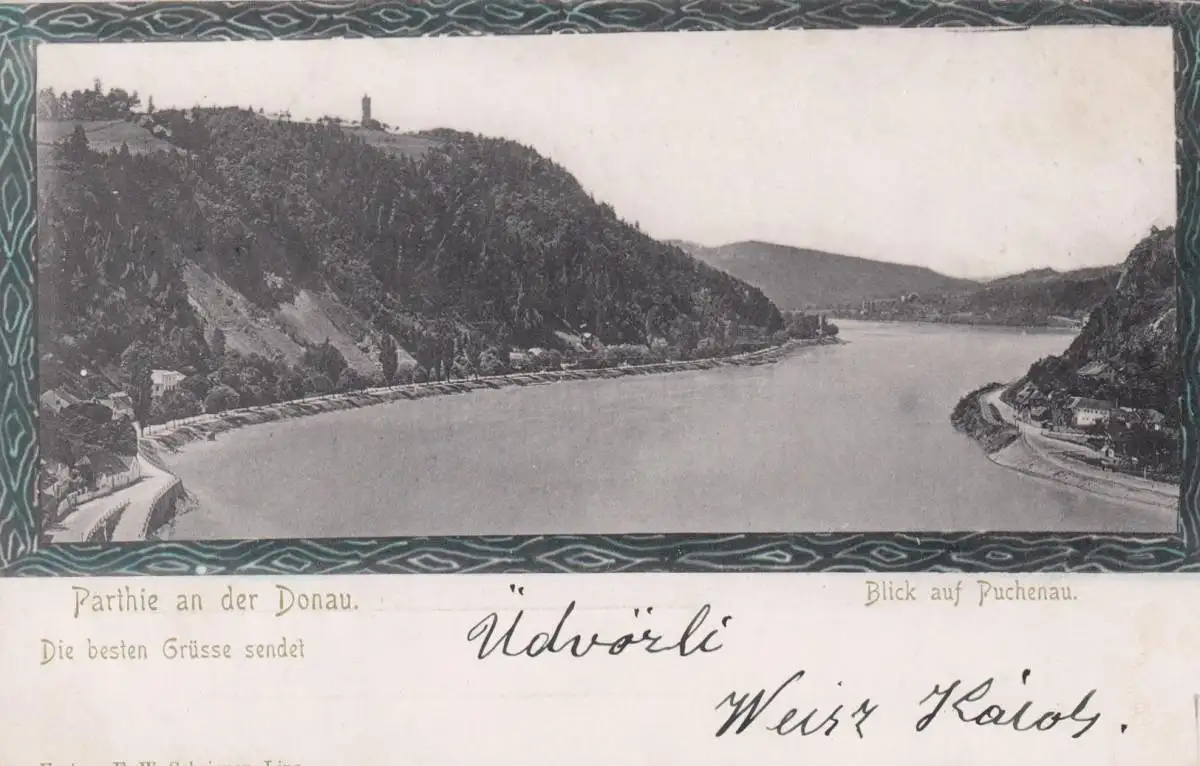 Parthie an der Donau.
Blick auf Puchenau.
Die besten Grüsse sendet
Üdvözli
Weisz Károly.
Linz